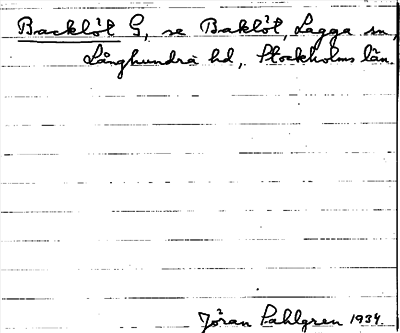 Backlöt G, se Baklöt, Lagga sn,
Långhundra hd, Stockholms län.
Jöran Sahlgren 1934.